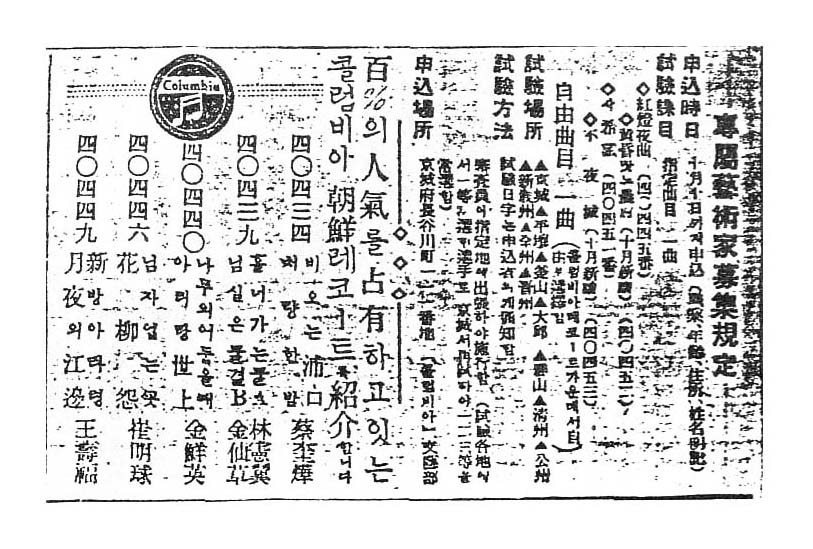 專屬藝術家募集規定
申込時日 十月 日까지申込 (職業、年齡、住所、姓名明記)
試驗課目 指定曲目 一曲
◇紅燈夜曲 (四〇四四五番)
◇黃昏 (十月新譜) (四〇四五二)
(四〇四五一番)
◇不夜城 (十月新譜) (四〇四五三)
自由曲目 一曲 (콜럼비아레코ー드가운데서
試驗場所 ▲京城▲平壤▲釜山▲大邱 ▲群山▲淸州▲公州
▲新義州▲全州▲晋州
試驗方法 試驗日字는申込者에게通知함
審査員이指定地에出張하야施行함 (試驗各地에
서一等 選手로 京城서 一二三等을
當選함)
申込場所 京城府長谷川町一一二番地 (콜럼비아) 文藝部
◇◇◇
百%의人氣를占有하고잇는
콜럼비아 朝鮮레코ー드를紹介합니다
Columbia
四〇四三四 비오는浦口
처량한밤 蔡奎燁
四〇四三九 흘너가는물
님실은물결 林憲翼
金仙草
四〇四四〇 나무
아리랑世上 金鮮英
四〇四四六 님자업는
花柳怨 崔明珠
四〇四四九 新방아타령
月夜의江邊 王壽福